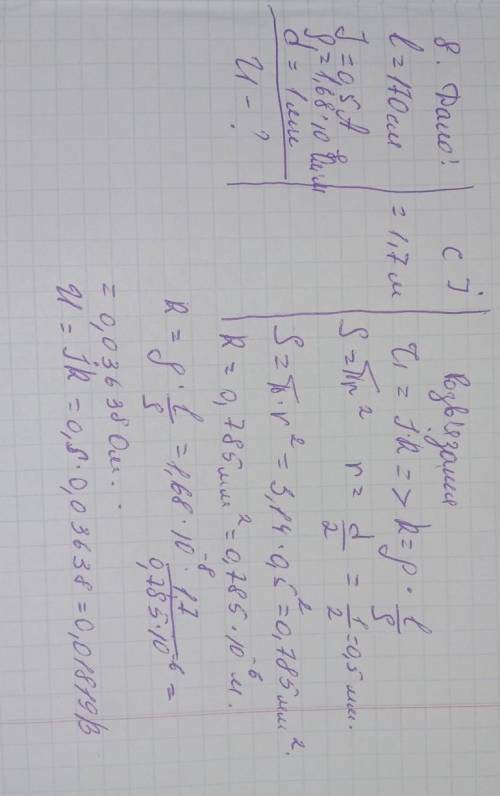 8. Дано:
l = 170 см
I = 0,5 А
ρ = 1,68·10⁻⁸ Ом·м
d = 1 мм
U - ?
СІ
= 1,7 м
Розв'язання
U = IR => R = ρ · l/S
S = πr² r = d/2 = 1/2 = 0,5 мм.
S = π·r² = 3,14·0,5² = 0,785 мм².
R = 0,785 мм² = 0,785·10⁻⁶ м.
R = ρ · l/S = 1,68·10⁻⁸ · 1,7/0,785·10⁻⁶ =
= 0,03638 Ом.
U = IR = 0,5·0,03638 = 0,01819 В